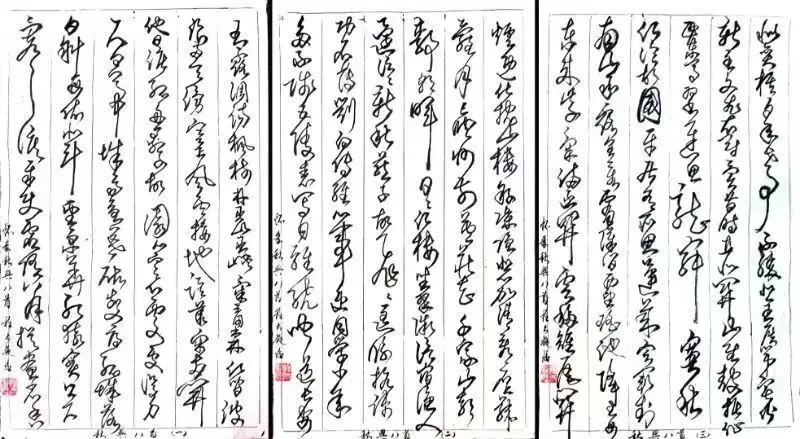 玉露凋傷楓樹林巫山巫峽氣蕭森江間波
浪兼天湧塞上風雲接地陰叢菊兩開
他日淚孤舟一繫故園心寒衣處處催刀
尺白帝城高急暮砧夔府孤城落
日斜每依北斗望京華聽猿實下三
聲淚奉使虛隨八月槎畫省香
懷素秋興八首
秋興八首(一)
爐違伏枕山樓粉堞隱悲笳請看石上藤
蘿月已映洲前蘆荻花千家山郭
靜朝暉日日江樓坐翠微信宿漁人
還泛泛清秋燕子故飛飛匡衡抗疏
功名薄劉向傳經心事違同學少年
多不賤五陵衣馬自輕肥聞道長安
懷素秋興八首
秋興八首(二)
似奕棋百年世事不勝悲王侯第宅皆
新主文武衣冠異昔時直北關山金鼓振征
西車馬羽書遲魚龍寂寞秋
江冷故國平居有所思蓬萊宮闕對
南山承露金莖霄漢間西望瑤池降王母
東來紫氣滿函關雲移雉尾開
懷素秋興八首
秋興八首(三)